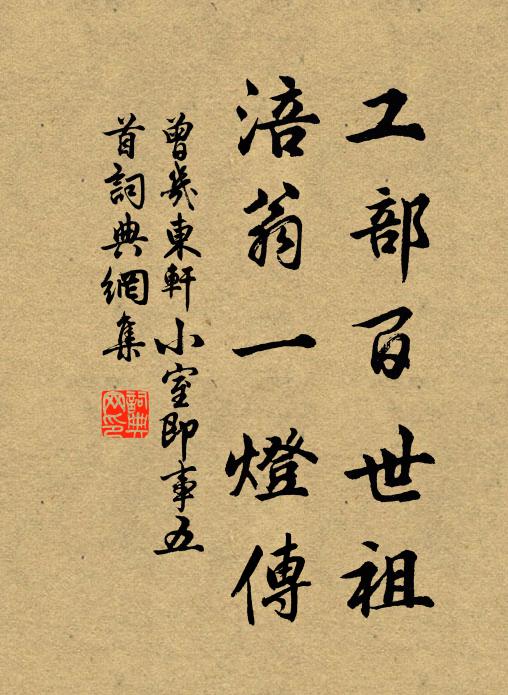 工部百世祖
涪翁一燈傳
曾幾東軒小室即事五
首詞典網集
詞典
网印